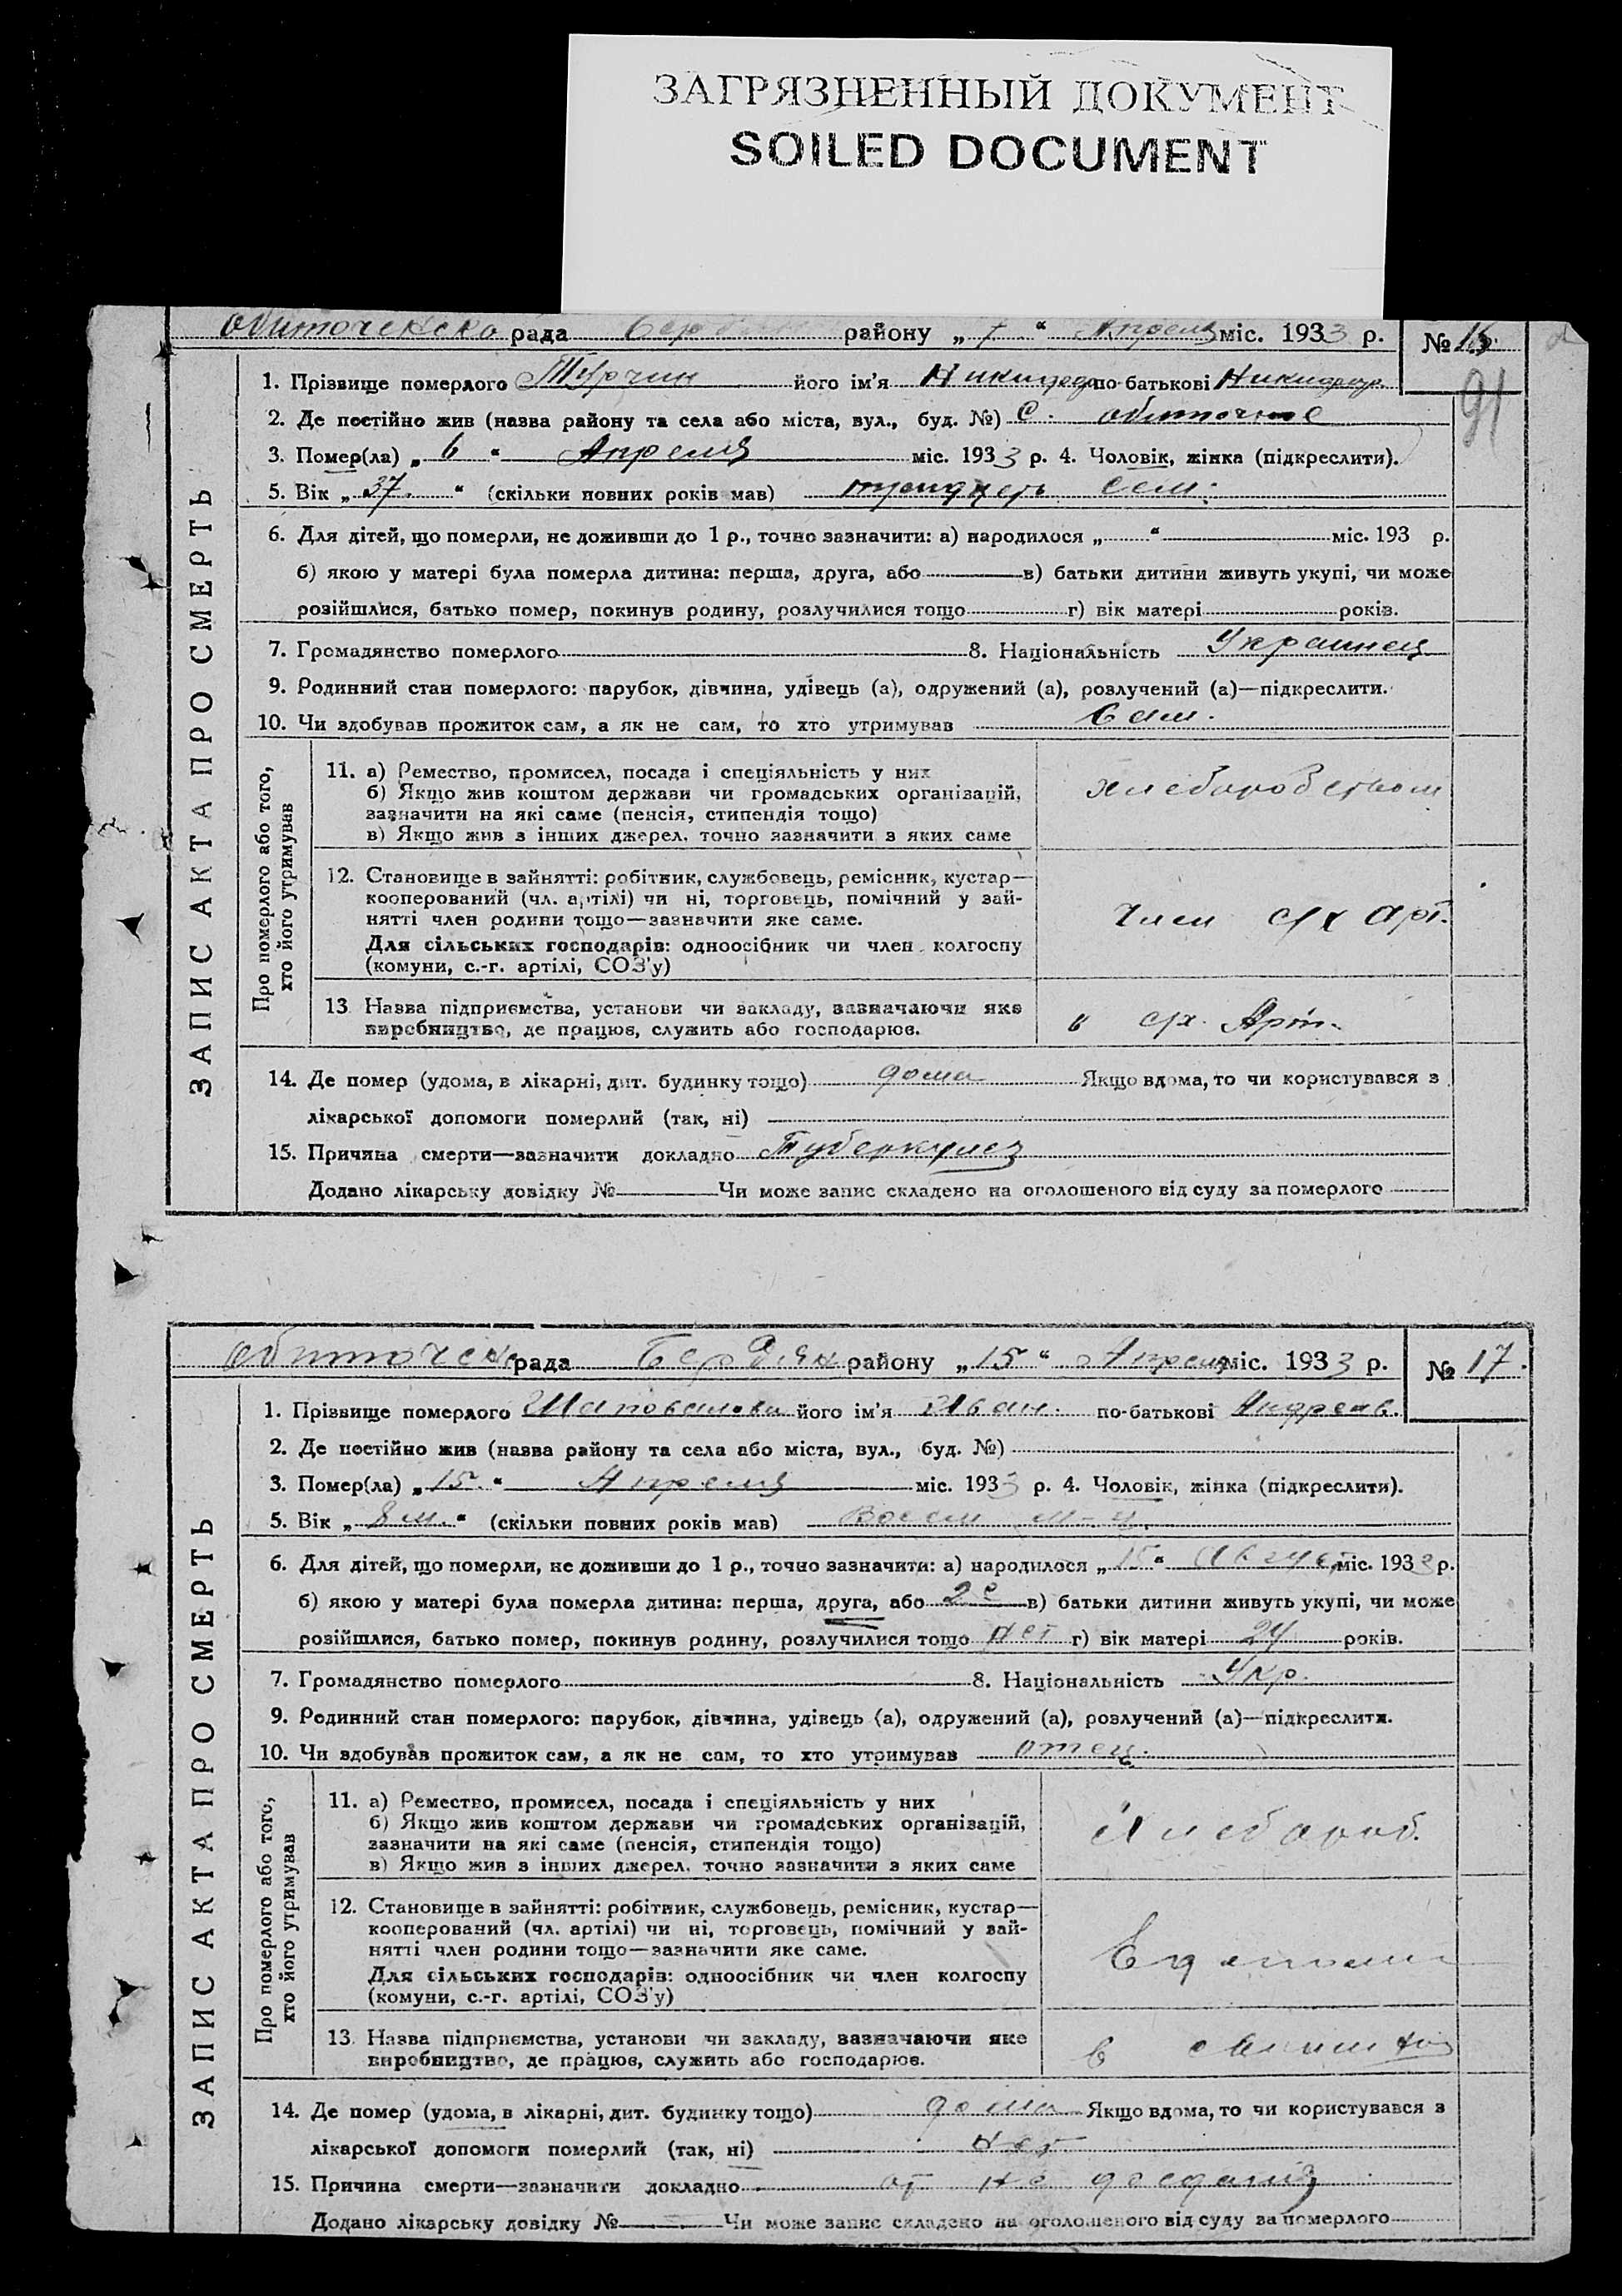 ЗАГРЯЗНЕННЫЙ ДОКУМЕНТ
SOILED DOCUMENT
Обиточенско рада району „7“ Апреля міс. 1933 р. №
91
ЗАПИС АКТА ПРО СМЕРТЬ
1. Прізвище померлого Турчин його ім’я по-батькові
2. Де постійно жив (назва району та села або міста, вул., буд. №) С. Обиточное
3. Помер(ла) „6“ Апреля міс. 1933 р. 4. Чоловік, жінка (підкреслити).
5. Вік „37.“ (скільки повних років мав) тридцеть сем.
6. Для дітей, що померли, не доживши до 1 р., точно зазначити: а) народилося „ “ міс. 193 р.
б) якою у матері була померла дитина: перша, друга, або в) батьки дитини живуть укупі, чи може
розійшлися, батько помер, покинув родину, розлучилися тощо г) вік матері років.
7. Громадянство померлого 8. Національність Украинец
9. Родинний стан померлого: парубок, дівчина, удівець (а), одружений (а), розлучений (а)—підкреслити.
10. Чи здобував прожиток сам, а як не сам, то хто утримував Сам.
Про померлого або того, хто його утримував
11. а) Ремество, промисел, посада і спеціяльність у них
б) Якщо жив коштом держави чи громадських організацій,
зазначити на які саме (пенсія, стипендія тощо)
в) Якщо жив з інших джерел. точно зазначити з яких саме
хлеборобством
12. Становище в зайнятті: робітник, службовець, ремісник, кустар—
кооперований (чл. артілі) чи ні, торговець, помічний у зай-
нятті член родини тощо—зазначити яке саме.
Для сільських господарів: одноосібник чи член колгоспу
(комуни, с.-г. артілі, СОЗ’у)
Член с/х Арт.
13 Назва підприємства, установи чи закладу, зазначаючи яке
виробництво, де працює, служить або господарює.
в с/х. Арт.
14. Де помер (удома, в лікарні, дит. будинку тощо) дома Якщо вдома, то чи користувався з
лікарської допомоги померлий (так, ні)
15. Причина смерти—зазначити докладно Туберкулез
Додано лікарську довідку № Чи може запис складено на оголошеного від суду за померлого
Обиточенс рада Бердян району „15“ Апреля міс. 1933 р. № 17.
ЗАПИС АКТА ПРО СМЕРТЬ
1. Прізвище померлого його ім’я Иван. по-батькові Андреев.
2. Де постійно жив (назва району та села або міста, вул., буд. №)
3. Помер(ла) „15.“ Апреля міс. 1933 р. 4. Чоловік, жінка (підкреслити).
5. Вік „8 м.“ (скільки повних років мав) Восем м-ц.
6. Для дітей, що померли, не доживши до 1 р., точно зазначити: а) народилося „15“ Август міс. 1932 р.
б) якою у матері була померла дитина: перша, друга, або 2е в) батьки дитини живуть укупі, чи може
розійшлися, батько помер, покинув родину, розлучилися тощо нет г) вік матері 24 років.
7. Громадянство померлого 8. Національність Укр.
9. Родинний стан померлого: парубок, дівчина, удівець (а), одружений (а), розлучений (а)—підкреслити.
10. Чи здобував прожиток сам, а як не сам, то хто утримував отец.
Про померлого або того, хто його утримував
11. а) Ремество, промисел, посада і спеціяльність у них
б) Якщо жив коштом держави чи громадських організацій,
зазначити на які саме (пенсія, стипендія тощо)
в) Якщо жив з інших джерел. точно зазначити з яких саме
Хлебороб.
12. Становище в зайнятті: робітник, службовець, ремісник, кустар—
кооперований (чл. артілі) чи ні, торговець, помічний у зай-
нятті член родини тощо—зазначити яке саме.
Для сільських господарів: одноосібник чи член колгоспу
(комуни, с.-г. артілі, СОЗ’у)
13. Назва підприємства, установи чи закладу, зазначаючи яке
виробництво, де працює, служить або господарює.
в
14. Де помер (удома, в лікарні, дит. будинку тощо) дома Якщо вдома, то чи користувався з
лікарської допомоги померлий (так, ні) Нет
15. Причина смерти—зазначити докладно от не доедания
Додано лікарську довідку № Чи може запис складено на оголошеного від суду за померлого